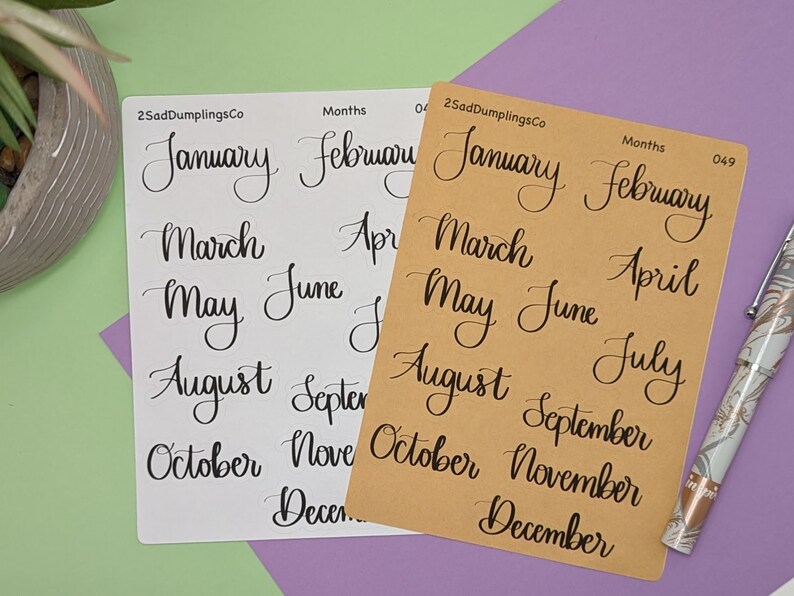 2SadDumplingsCo Months 04
January February
March Apr
May June
J
August Septe
October Nove
Decem
2SadDumplingsCo Months 049
January February
March April
May June
July
August September
October November
December